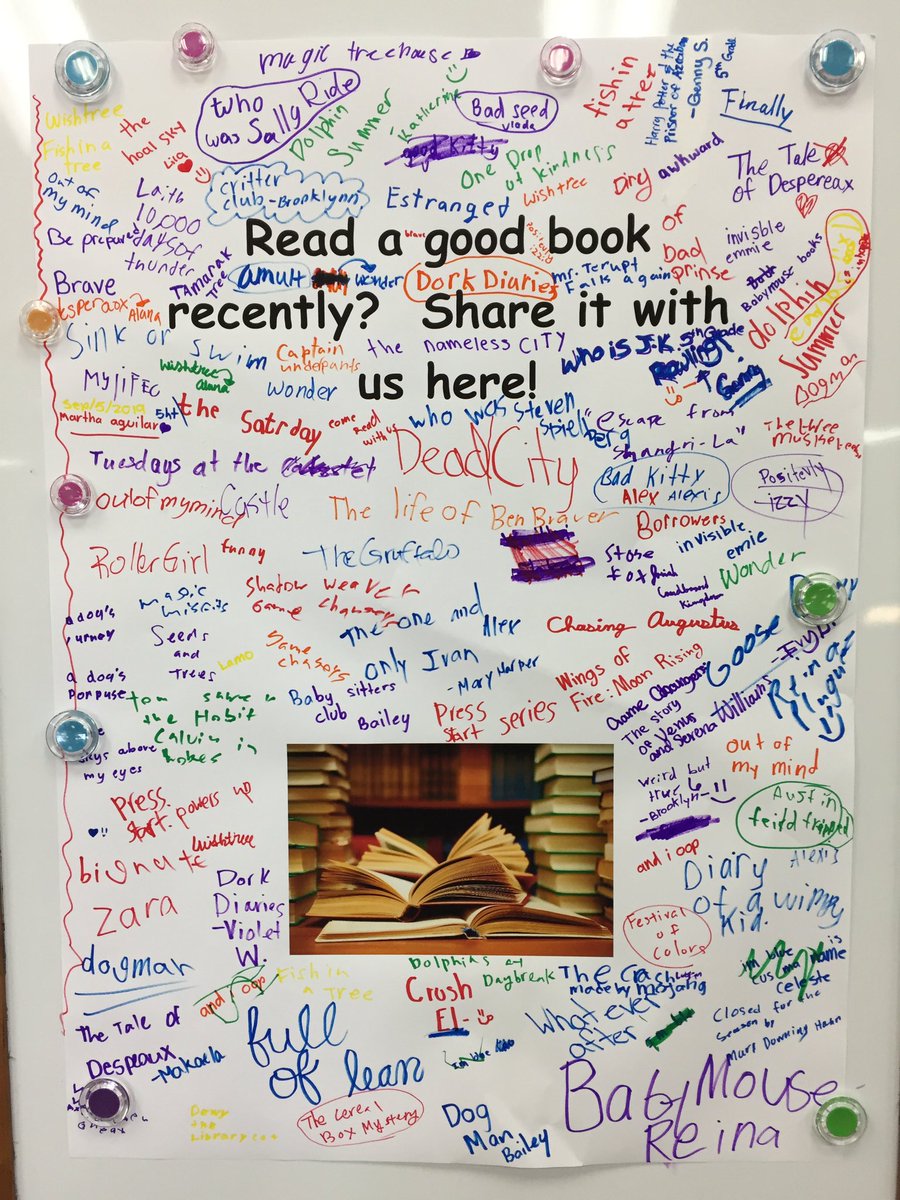 magic treehouse
who was Sally Ride
Dolphin Summer
Katherine
Bad seed
good Kitty
fishin a tree
Harry Potter & the prisoner of Azcaban
- Genny S.
5th Grade
Finally
Wishtree
Fish in a tree
the
Lila
One Drop of kindness
wishtree
awkward
The Tale of Despereax
out of my mind
Laith
10,000 days of thunder
critter club - Brooklynn
Estranged
Diry of Dad
invisible emmie
Be prepared
Brave
Tamarak Tree
Read a good book
brave
recently? Share it with
us here!
wonder
Dork Diaries
mr. Terupt Falls again
Babymouse books
dolphin Summer
Alana
Sink or swim
Captain underpants
the nameless CITY
who is J.K. Rowling
5th Grade
Genny
Dogman
wishtree
alana
wonder
Sep/5/2019
Martha aguilar
the Satrday
come Read with us
who was Steven spielberg
"escape from Shangri-La"
The three musketeers
Tuesdays at the
Castle
Dead City
Bad Kitty
Alex Alexis
Positevly Izzy
outofmymind
The life of Ben Braver
Borrowers
Roller Girl
funny
The Gruffalo
Stone fox
invisible emie
Wonder
magic misfits
Shadow weaver
Game changer
The one and only Ivan
Alex
- Mary Harper
Chasing Augustus
a dog's purpuse
Seeds and Trees
Lamo
Same chasers
Goose
Wings of Fire: Moon Rising
Tom
the Hobit
Calvin in hobes
Baby sitters club
Bailey
Press start series
The story of Venus and Serena Williams
skys above my eyes
out of my mind
Press start powers up
weird but true
- Brooklyn -
Austin
wishtree
and i oop
big nate
Diary of a wimpy kid.
Alexis
zara
Dork Diaries
- Violet W.
Festival of Colors
dogman
and i oop
Fish in a Tree
Dolphins at Daybreak
Crush
El-
The crash
made by mojang
name is celeste
What ever after
Closed for the Season by Mary Downing Hahn
The Tale of Despeaux
- Makaela
full of lean
Dewy the Library cat
The Cereal Box Mystery
Dog Man
Bailey
BabyMouse-
Reina